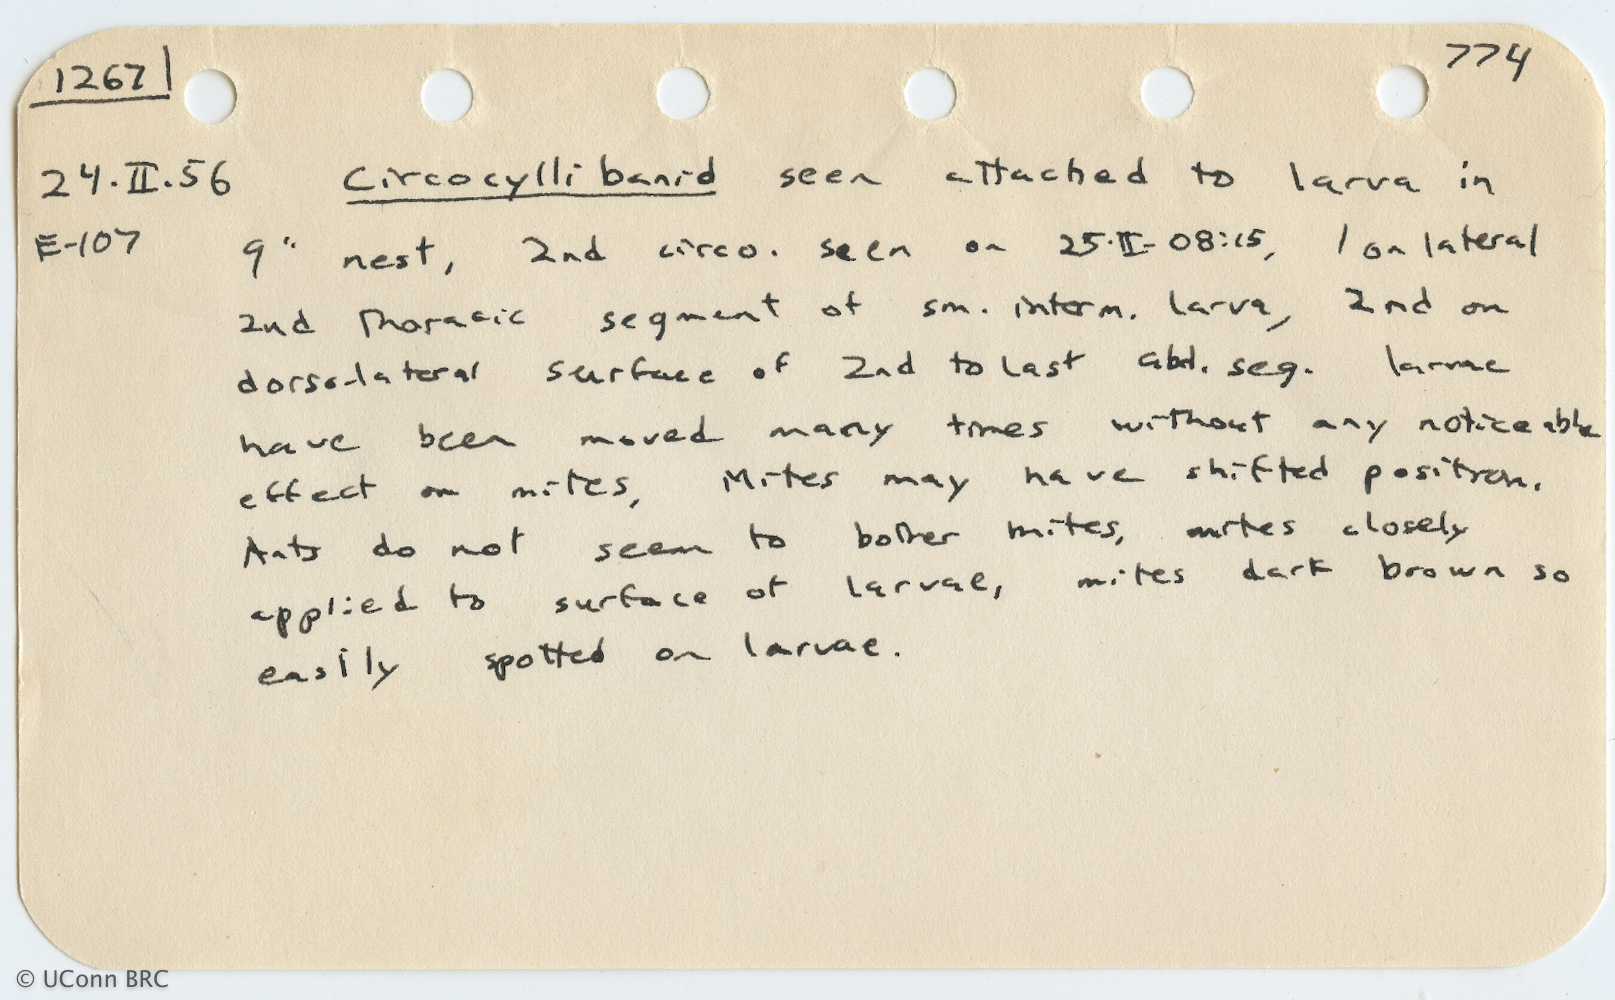 1267 774
24.II.56 Circocyllibanid seen attached to larva in
E-107 9" nest, 2nd circo. seen on 25.II-08:15, 1 on lateral
2nd thoracic segment of sm. interm. larva, 2nd on
dorso-lateral surface of 2nd to last abd. seg. larvae
have been moved many times without any noticeable
effect on mites, Mites may have shifted position.
Ants do not seem to bother mites, mites closely
applied to surface of larvae, mites dark brown so
easily spotted on larvae.
© UConn BRC